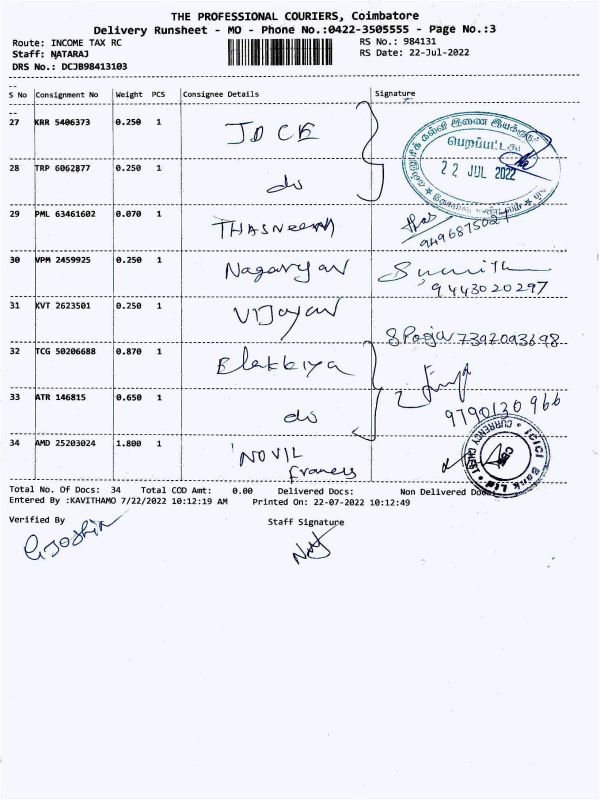 THE PROFESSIONAL COURIERS, Coimbatore
Delivery Runsheet - MO - Phone No.:0422-3505555 - Page No.:3
Route: INCOME TAX RC
RS No.: 984131
Staff: NATARAJ
RS Date: 22-Jul-2022
DRS No.: DCJB98413103
S No Consignment No Weight PCS Consignee Details Signature
27 KRR 5406373 0.250 1 JDCE
பெறப்பட்டது
28 TRP 6062877 0.250 1 do
22 JUL 2022
29 PML 63461602 0.070 1 THASNeeM
9496875027
30 VPM 2459925 0.250 1 Nagarajan
9443020297
31 KVT 2623501 0.250 1 Vijayan
S Pooja 7392093698
32 TCG 50206688 0.870 1 Elakkiya
33 ATR 146815 0.650 1 do
9790130966
34 AMD 25203024 1.800 1 NOVIL
Francis
ICICI Bank Ltd CURRENCY CHEST
Total No. Of Docs: 34 Total COD Amt: 0.00 Delivered Docs: Non Delivered Docs:
Entered By :KAVITHAMO 7/22/2022 10:12:19 AM Printed On: 22-07-2022 10:12:49
Verified By Staff Signature